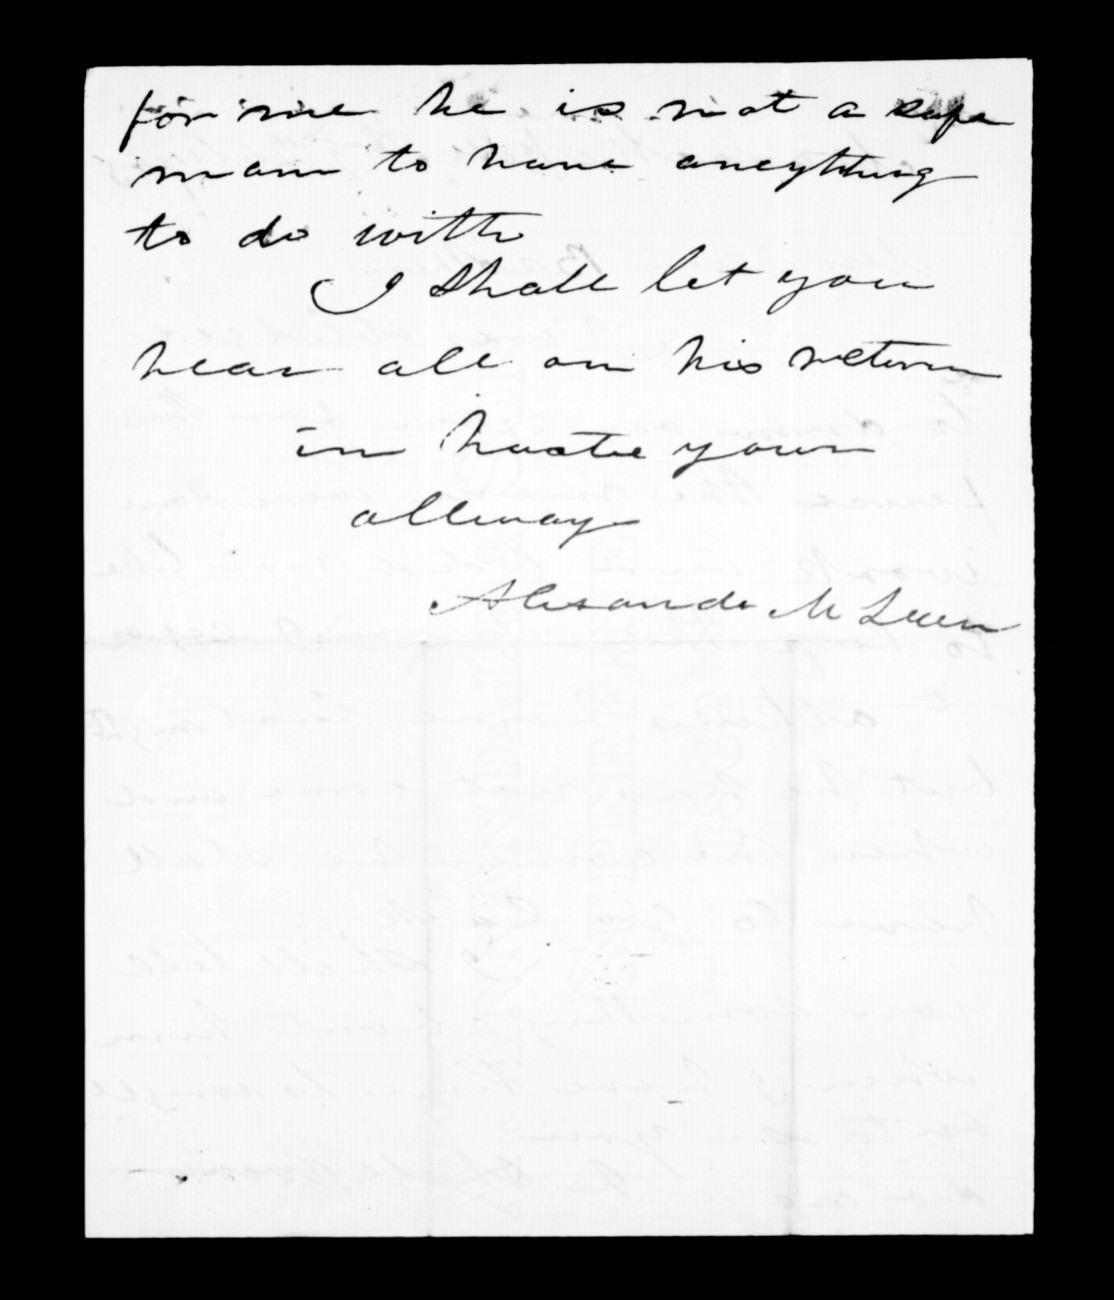 for me he is not a safe
man to have aneything
to do with
I shall let you
hear all on his return
in haste yours
allways
Alexander McLean